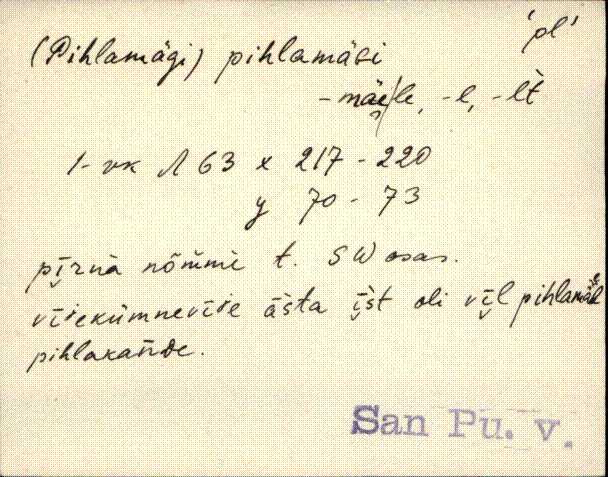 'pl'
(Pihlamägi) pihlamäsi
-mäe/le, -l, -lt
1-vk Л 63 x 217-220
y 70-73
pīrnà nõm̀me t. SW osas.
vīekümnevīe āsta īst oli vīl pihlamäel
pihlakande.
San Pu. v.